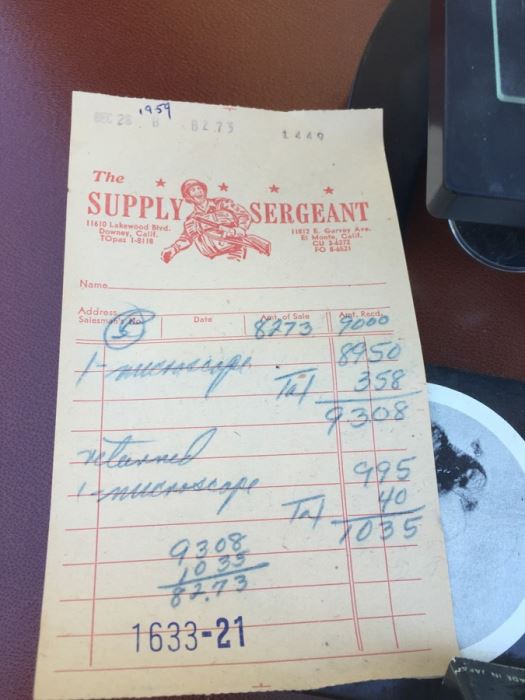 1959
DEC 28 B 82.73 1449
The
SUPPLY SERGEANT
11610 Lakewood Blvd.
Downey, Calif.
TOpaz 1-8118
11812 E. Garvey Ave.
El Monte, Calif.
CU 3-6272
FO 8-6521
Name
Address
Salesman's No. Date Amt. of Sale Amt. Recd.
5 8273 9000
1- microscope 8950
Tax 358
9308
returned
1- microscope 995
Tax 40
1035
9308
1035
82.73
1633-21
MADE IN JAPAN